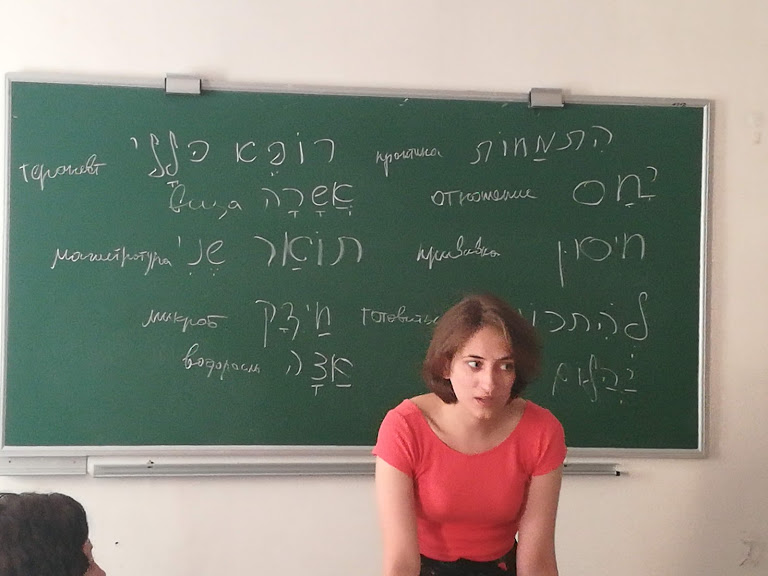 הִתמַחות практика
רוֹפֵא כְּלָלי терапевт
יַחַס отношение
אַשְרָה виза
חיסון прививка
תוֹאַר שֵני магистратура
готовитьс
חַידַק микроб
אַצָה водоросль